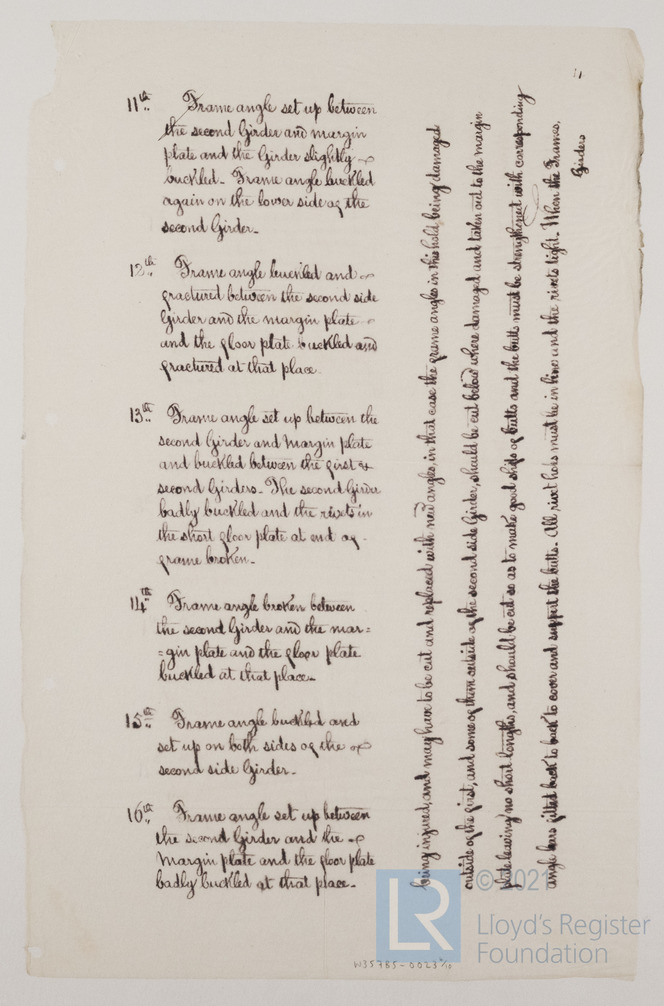 11
11th Frame angle set up between
the second Girder and margin
plate and the Girder slightly
buckled. Frame angle buckled
again on the lower side of the
second Girder.
12th Frame angle buckled and
fractured between the second side
Girder and the margin plate
and the floor plate buckled and
fractured at that place.
13th Frame angle set up between the
second Girder and Margin plate
and buckled between the first &
second Girders. The second Girder
badly buckled and the rivets in
the short floor plate at end of
frame broken.
14th Frame angle broken between
the second Girder and the mar=
=gin plate and the floor plate
buckled at that place.
15th Frame angle buckled and
set up on both sides of the
second side Girder.
16th Frame angle set up between
the second Girder and the
Margin plate and the floor plate
badly buckled at that place.
being injured, and may have to be cut and replaced with new angles, in that case the frame angles in this hold, being damaged
outside of the first, and some of them outside of the second side Girder, should be cut below where damaged and taken out to the margin
plate leaving no short lengths, and should be cut so as to make good shifts of butts and the butts must be strengthened with corresponding
angle bars fitted back to back to cover and support the butts. All rivet holes must be in line and the rivets tight. When the Frames,
Girders
© 2021
LR
Lloyd's Register
Foundation
W35785-0023 6/10